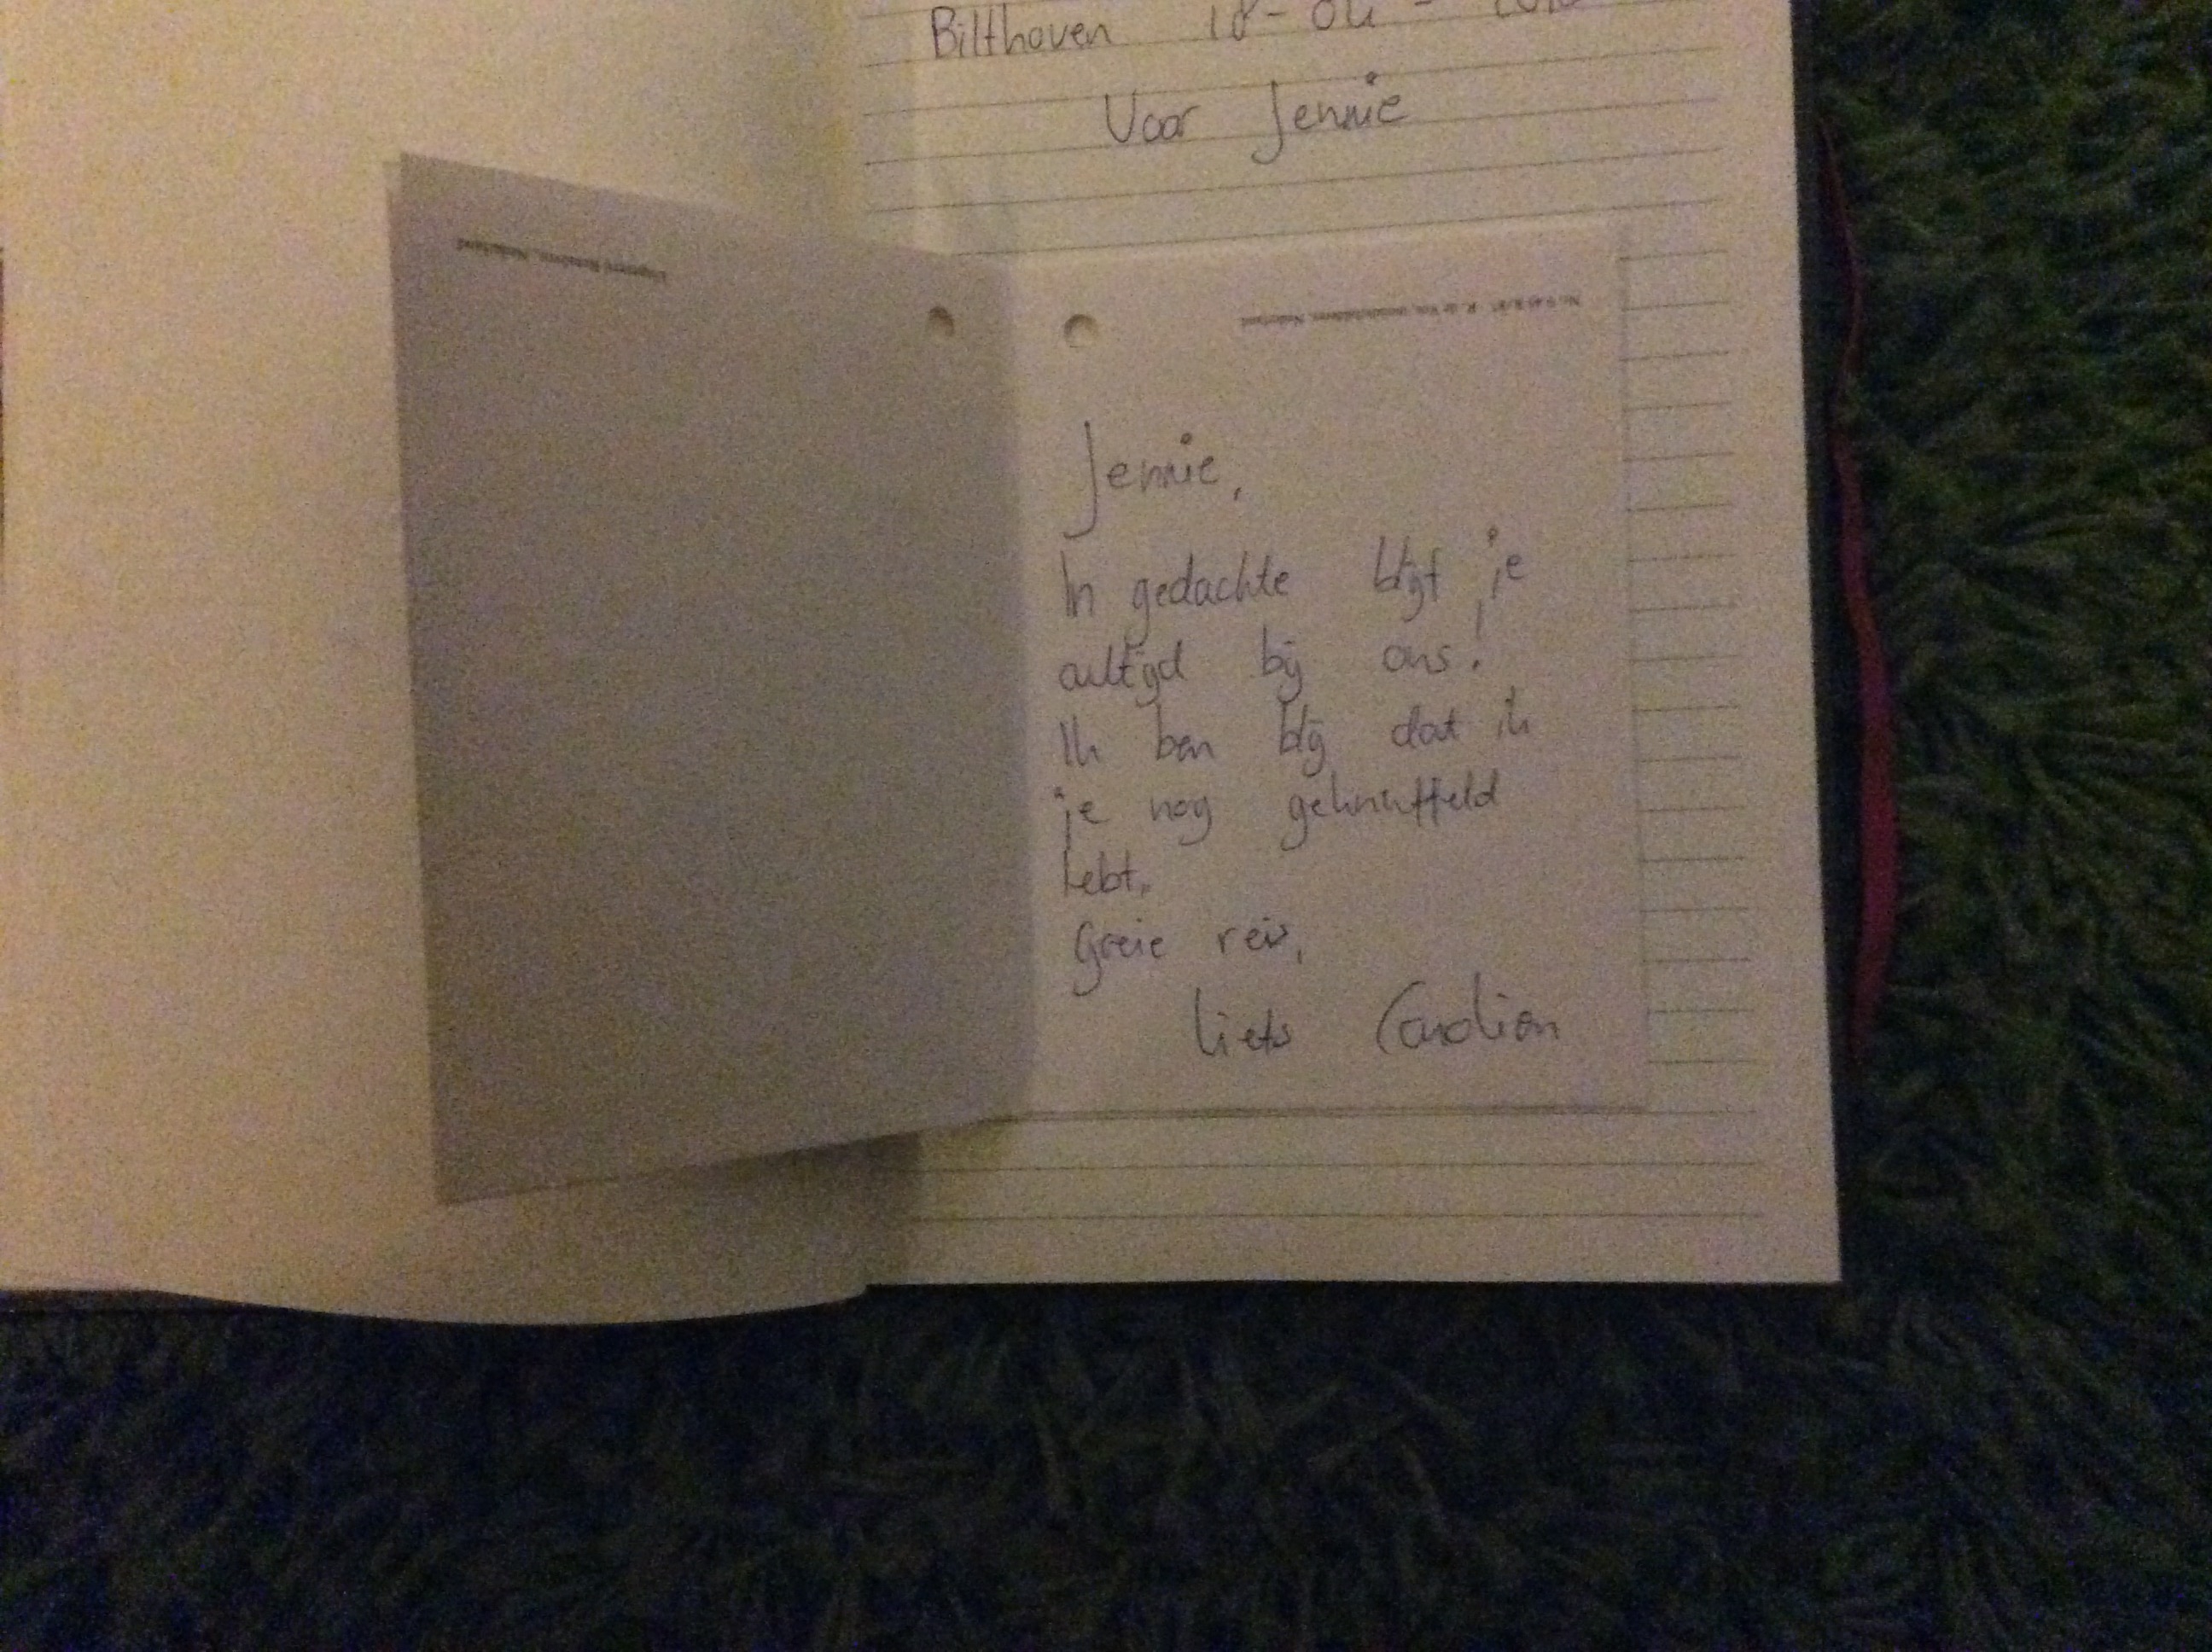 Bilthoven 18-04-
Voor Jennie
Jennie,
In gedachte blijf je
altijd bij ons!
Ik ben blij dat ik
je nog geknuffeld
hebt,
goeie reis,
liefs